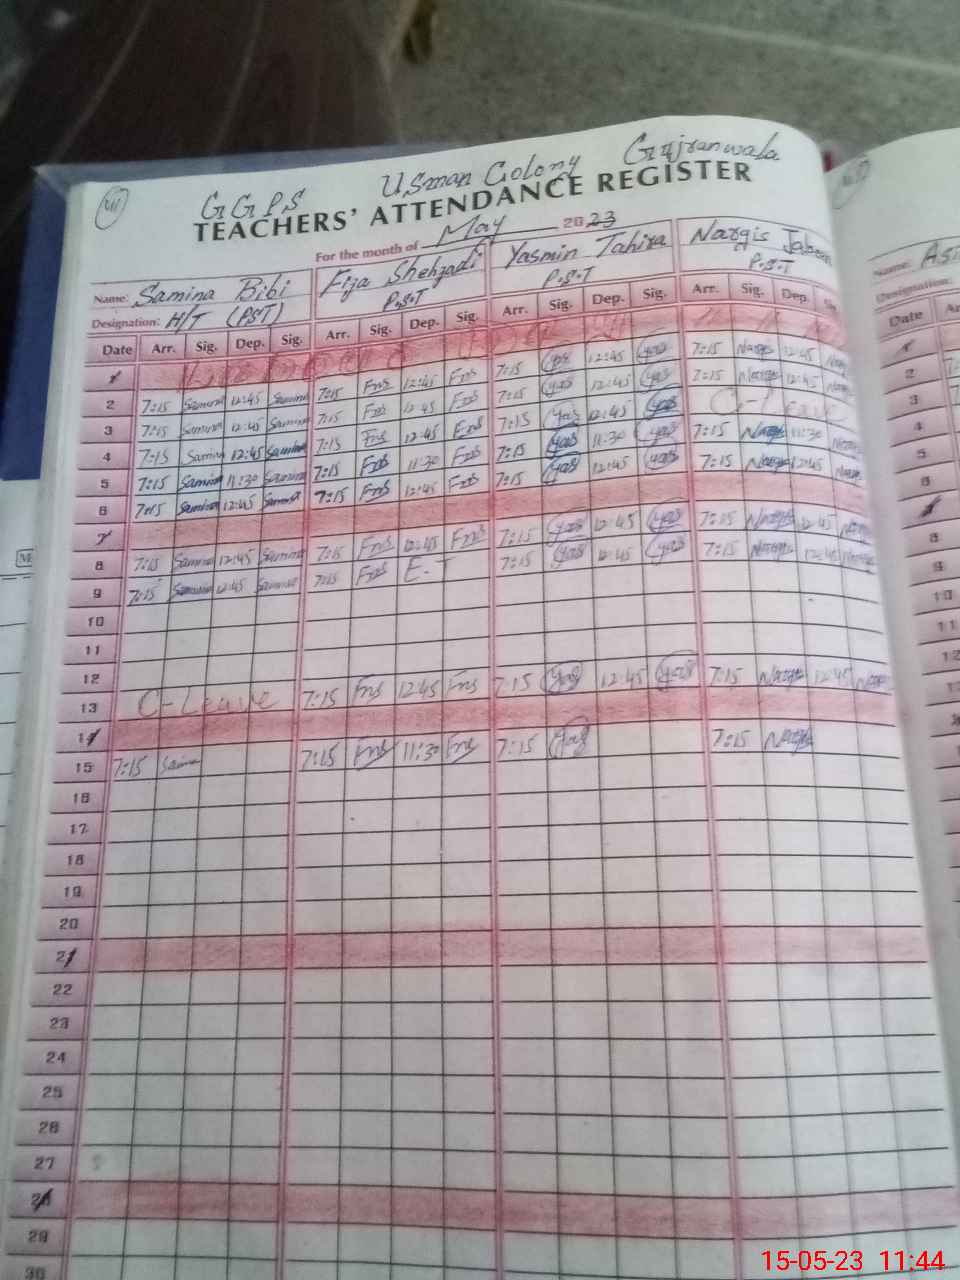 VII
G G P S Usman Colony Gujranwala
TEACHERS' ATTENDANCE REGISTER
For the month of May 2023
Name: Samina Bibi Fija Shehzadi Yasmin Tahira Nargis
Designation: H/T (PST) P.S.T P.S.T P.S.T
Date Arr. Sig. Dep. Sig. Arr. Sig. Dep. Sig. Arr. Sig. Dep. Sig. Arr. Sig. Dep. Sig.
1
2 7:15 Samina 12:45 Samina 7:15 Fns 12:45 Fns 7:15 Yas 12:45 Yas 7:15 Nargis 12:45 Nargis
3 7:15 Samina 12:45 Samina 7:15 Fns 12:45 Fns 7:15 Yas 12:45 Yas 7:15 Nargis 12:45 Nargis
4 7:15 Samina 12:45 Samina 7:15 Fns 12:45 Fns 7:15 Yas 12:45 Yas C-Leave
5 7:15 Samina 11:30 Samina 7:15 Fns 11:30 Fns 7:15 Yas 11:30 Yas 7:15 Nargis 11:30 Nargis
6 7:15 Samina 12:45 Samina 7:15 Fns 12:45 Fns 7:15 Yas 12:45 Yas 7:15 Nargis 12:45 Nargis
7
8 7:15 Samina 12:45 Samina 7:15 Fns 12:45 Fns 7:15 Yas 12:45 Yas 7:15 Nargis 12:45 Nargis
9 7:15 Samina 12:45 Samina 7:15 Fns E.T 7:15 Yas 12:45 Yas 7:15 Nargis 12:45 Nargis
10
11
12
13 C-Leave 7:15 Fns 12:45 Fns 7:15 Yas 12:45 Yas 7:15 Nargis 12:45 Nargis
14
15 7:15 Samina 7:15 Fns 11:30 Fns 7:15 Yas 7:15 Nargis
16
17
18
19
20
21
22
23
24
25
26
27
28
29
30
Name: Asi
Designation:
Date
2
3
4
5
6
8
9
10
11
12
15-05-23 11:44